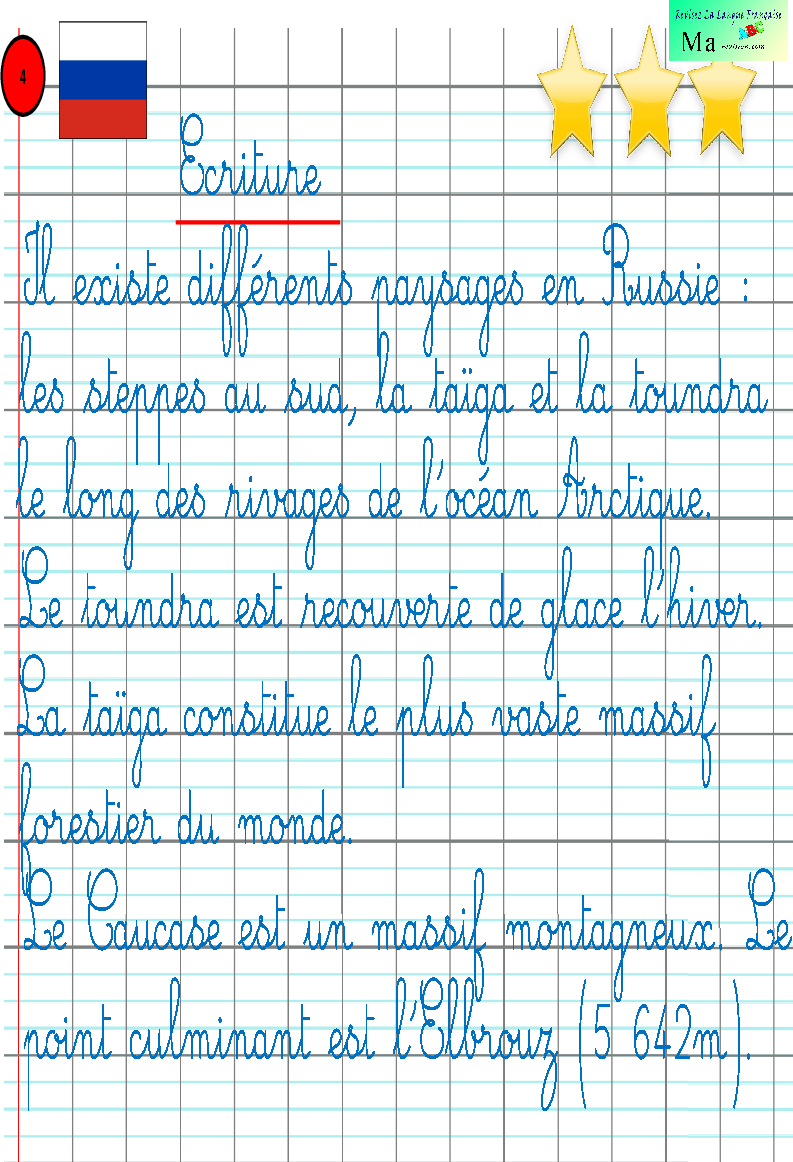 Revisez La Langue Française
Ma
4
Ecriture
Il existe différents paysages en Russie :
les steppes au sud, la taïga et la toundra
le long des rivages de l'océan Arctique.
Le toundra est recouverte de glace l'hiver.
La taïga constitue le plus vaste massif
forestier du monde.
Le Caucase est un massif montagneux. Le
point culminant est l'Elbrouz (5 642m).